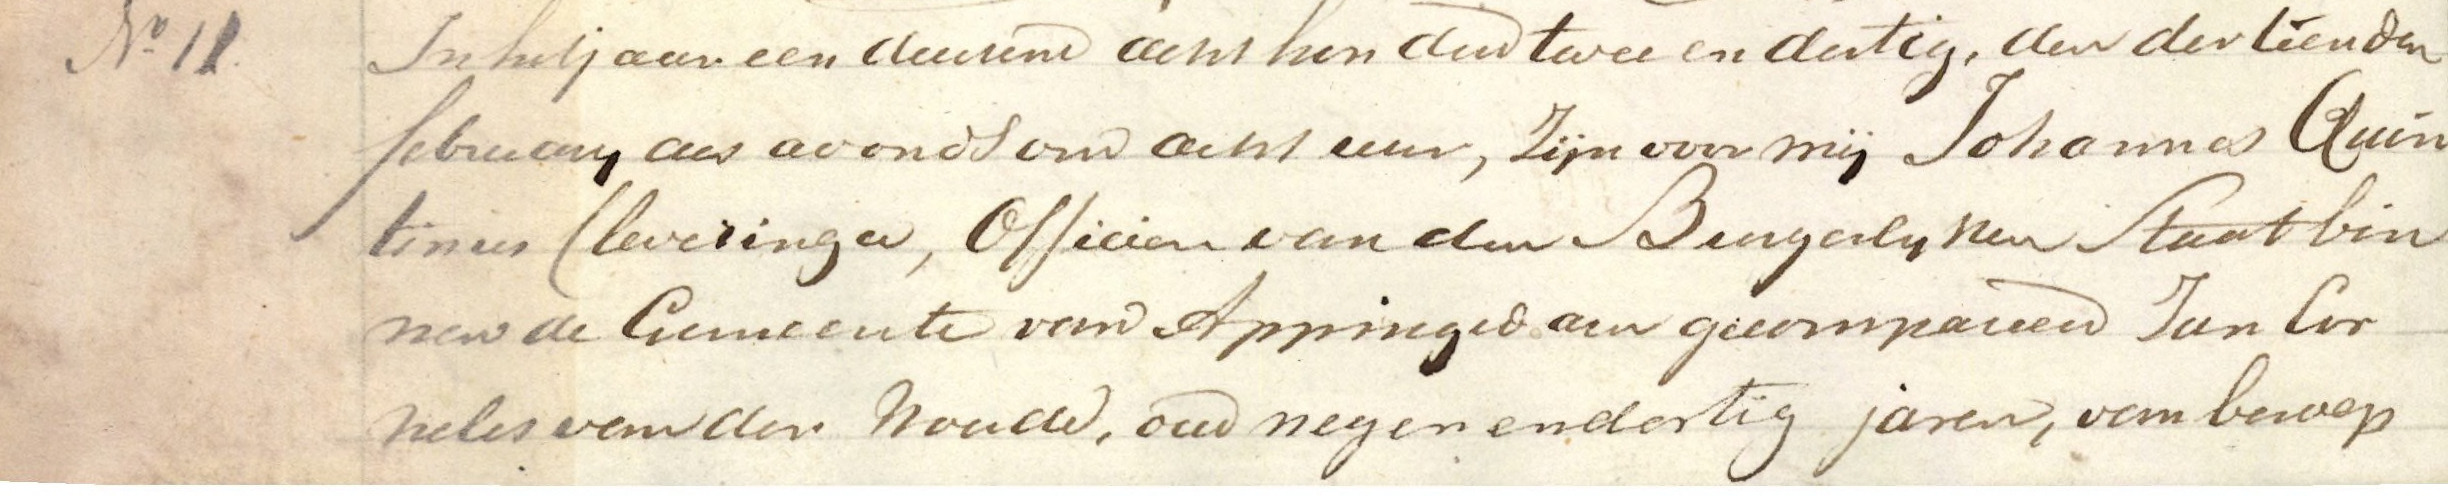 No 12. In het jaar een duizend acht honderd twee en dertig, den dertienden
february des avonds om acht uur, zijn voor mij Johannes Quin
tinus Cleveringa, Officier van den Burgerlyken Staat bin
nen de Gemeente van Appingedam gecompareerd Jan Cor
nelis van der Woude, oud negen en dertig jaren, van beroep